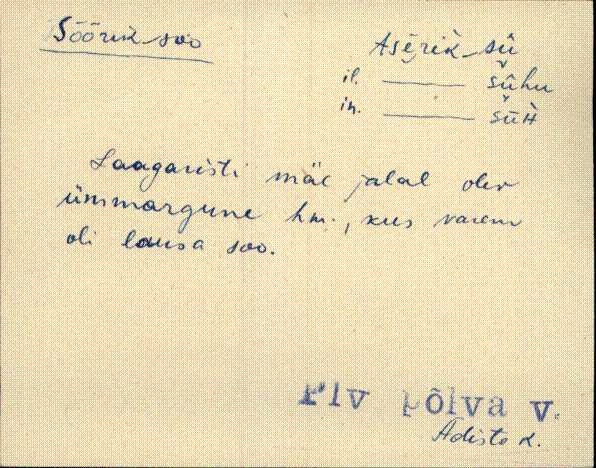 Sõõrik soo
Asẽrik sü
il. ——— šühu
in. ——— šüH
Laagaristi mäe jalal olev
ümmargune hm., kus varem
oli lausa soo.
Plv põlva v.
Adiste k.